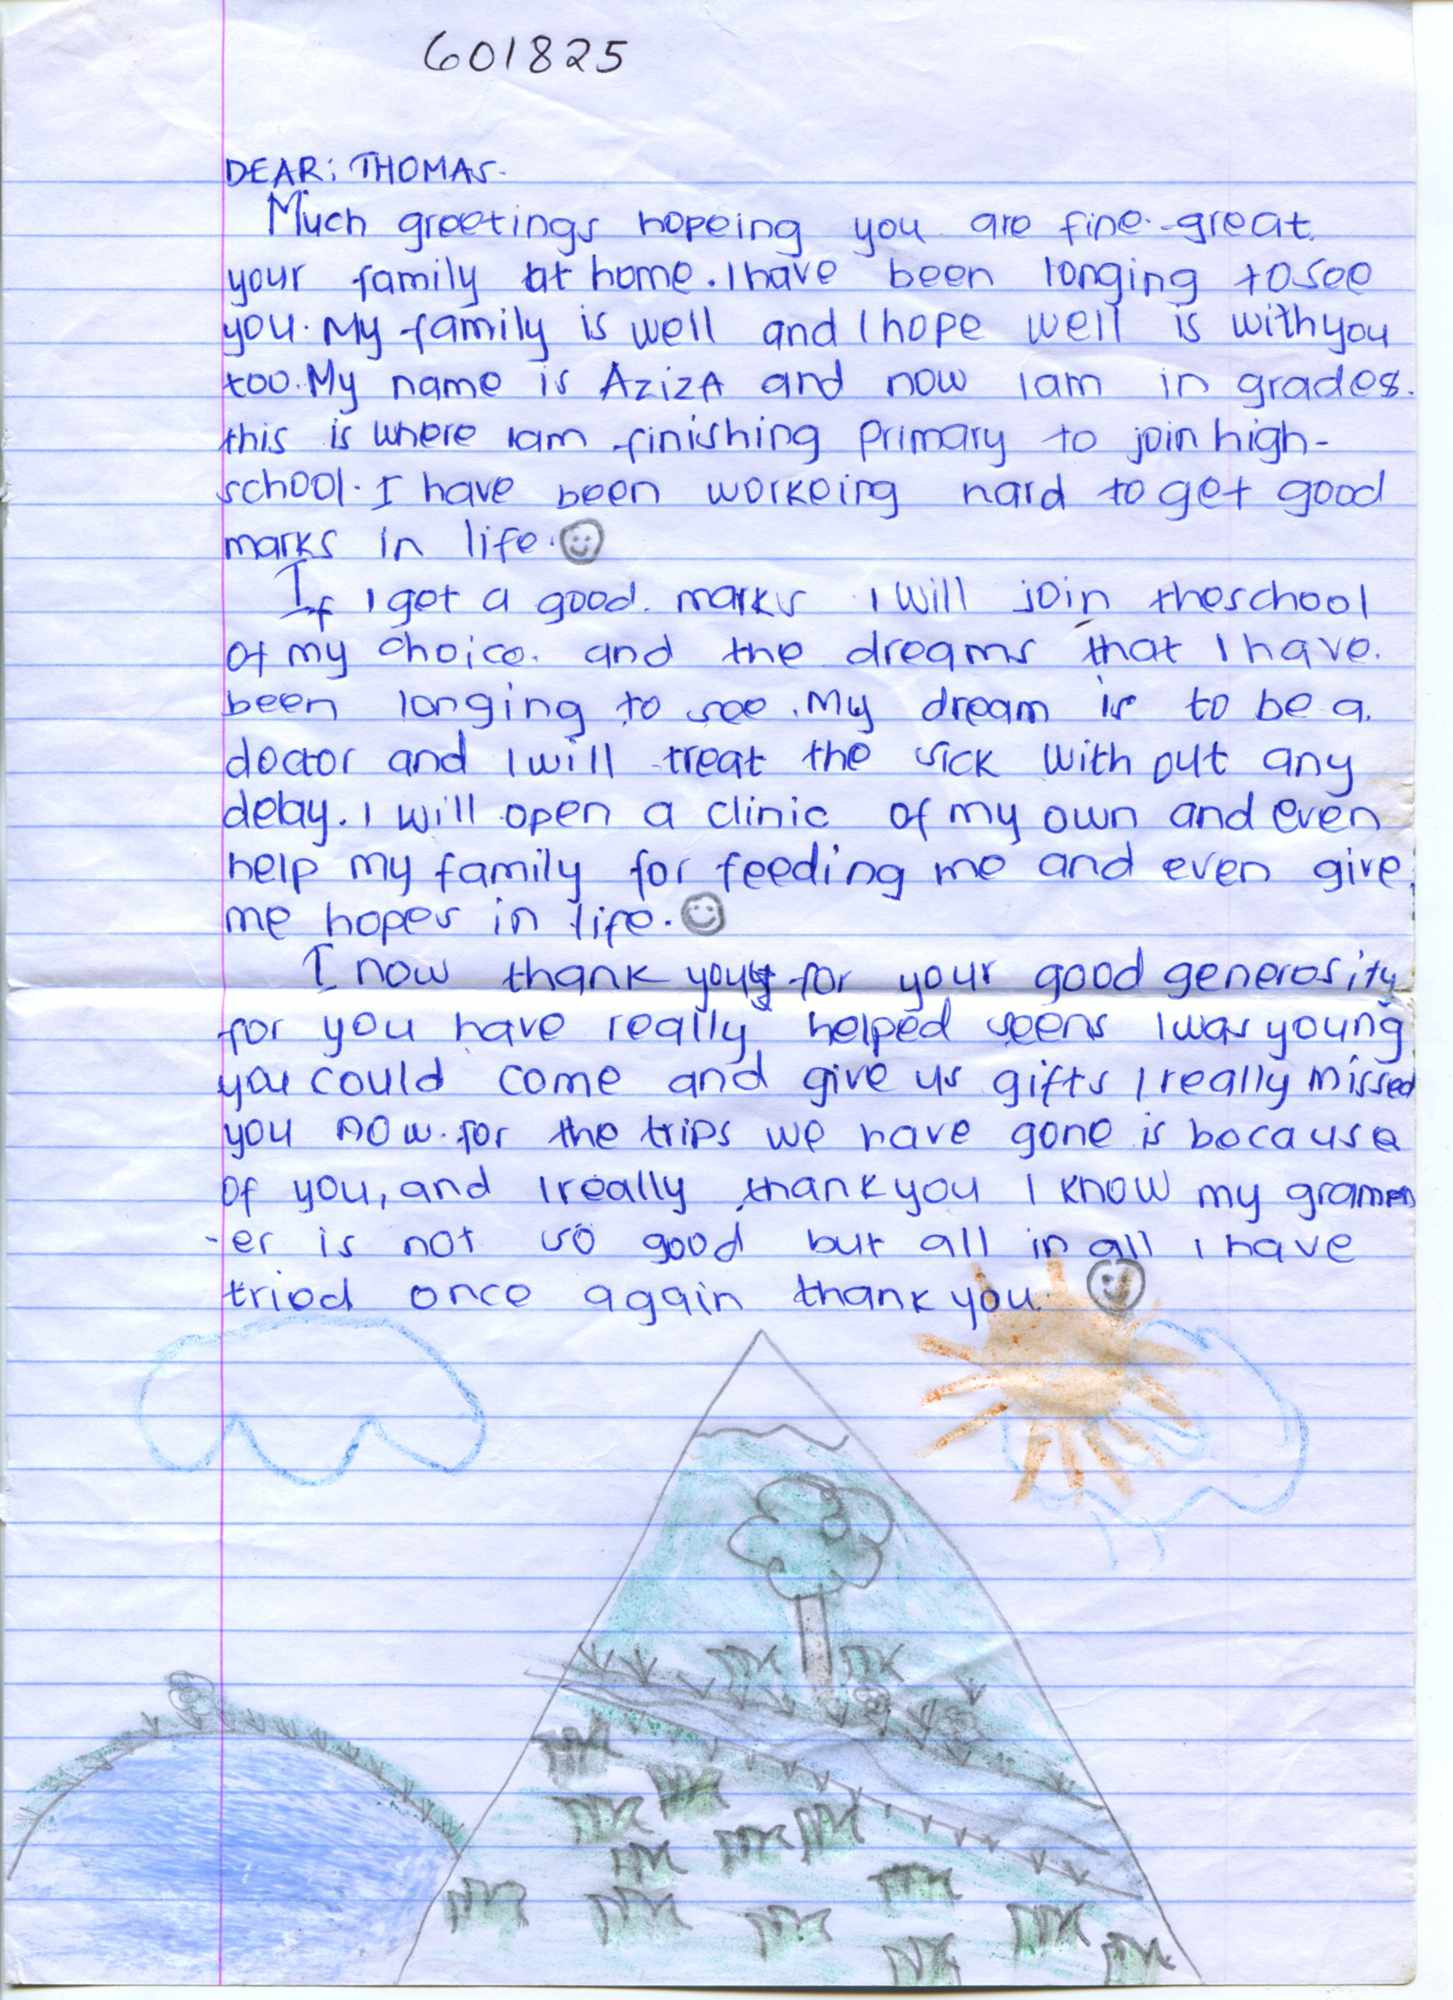 601825
DEAR: THOMAS.
Much greetings hopeing you are fine. great
your family at home. I have been longing to see
you. My family is well and I hope well is with you
too. My name is AZIZA and now I am in grade 8.
this is where I am finishing primary to join high-
school. I have been workeing hard to get good
marks in life.
If I get a good. marks I will join the school
of my choice. and the dreams that I have.
been longing to see. My dream is to be a.
doctor and I will treat the sick with out any
delay. I will open a clinic of my own and even
help my family for feeding me and even give
me hopes in life.
I now thank you for your good generosity
for you have really helped seens I was young
you could come and give us gifts I really missed
you now. for the trips we have gone is because
of you, and I really thank you I know my gramm
-er is not so good but all in all I have
tried once again thank you.